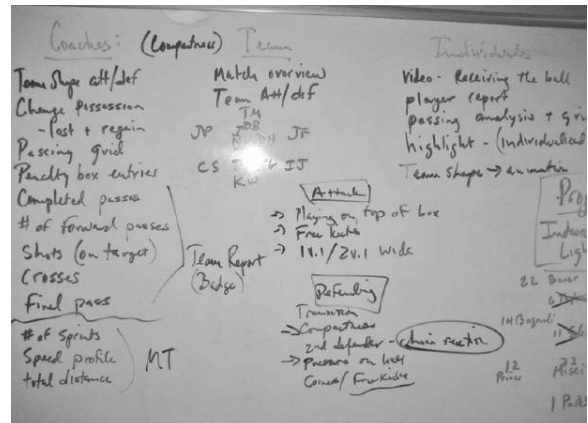 Coaches: (Compactness) Team
Individuals
Team Shape att/def
Change Possession
- lost + regain
Passing grid
Penalty box entries
Completed passes
# of forward passes
Shots (on target)
Crosses
Final pass
Team Report
(Badge)
# of Sprints
Speed profile
total distance
MT
Match overview
Team Att/def
TM
JP JF
CS IJ
KW
Attack
→ Playing on top of box
→ Free kicks
→ 1v.1/2v.1 wide
Defending
Transition
→ Compactness
2nd defender - chain reaction
→ Pressure on ball
Corners/Free Kicks
Video - Receiving the ball
player report
passing analysis +
highlight - (individualized
Team shape → animation
Indoor
Ligh
22
14
12
1